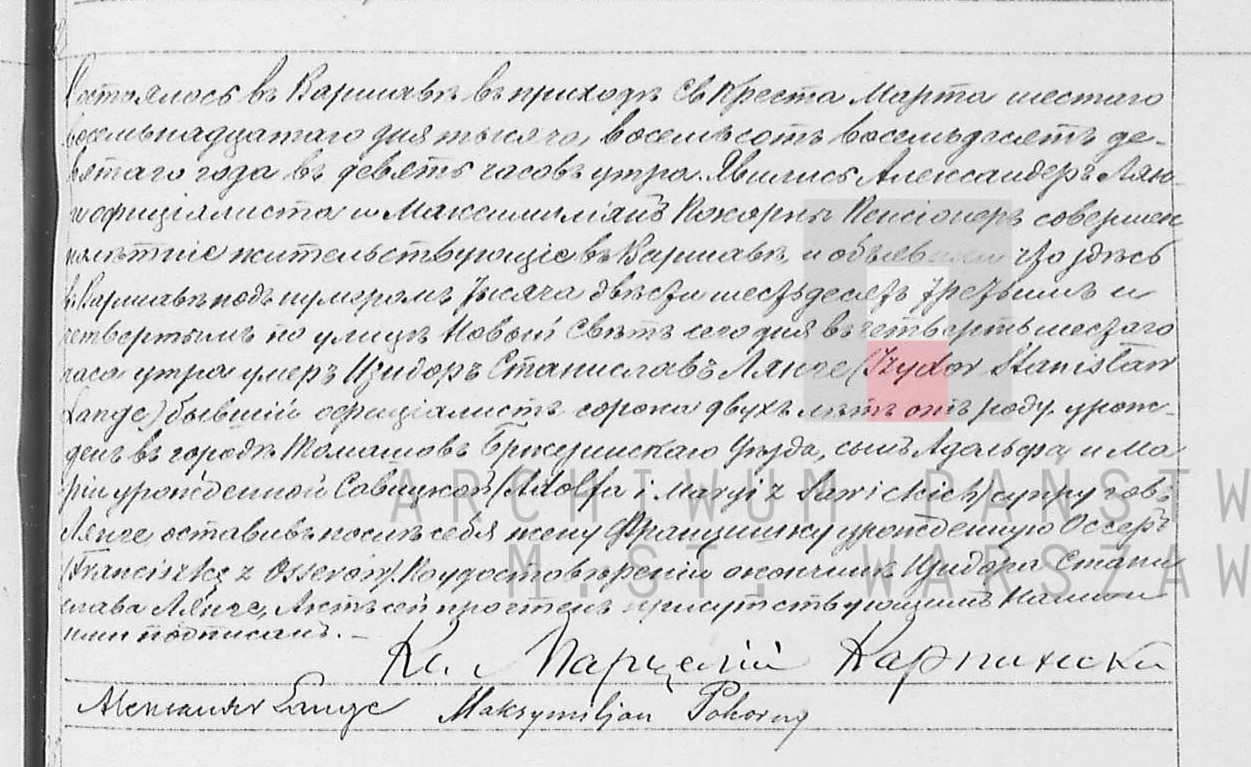 Состоялось въ Варшавѣ въ приходѣ Св Креста Марта шестаго
восемьнадцатаго дня тысяча восемьсотъ восемьдесятъ де-
вятаго года въ девять часовъ утра. Явились Александеръ Лян-
ге офиціялиста и Максимиліанъ Покорны Пенсіонеръ совершен
нолѣтніе жительствующіе въ Варшавѣ, и объявили что здѣсь
въ Варшавѣ подъ нумеромъ тысяча двѣсти шестьдесятъ третьимъ и
четвертымъ по улицѣ Новый Свѣтъ сегодня въ четверть шестаго
часа утра умеръ Изидоръ Станиславъ Лянге (Izydor Stanisław
Lange) бывшій офиціялистъ сорока двухъ лѣтъ отъ роду урож-
денъ въ городѣ Томашовъ Бржезинскаго уѣзда, сынъ Адольфа и Ма
ріи урожденной Савицкой (Adolfa i Maryi z Sawickich) супруговъ
Лянге оставивъ послѣ себя жену Францишку урожденную Оссеръ
(Franciszkę z Osserów). По удостовѣреніи о кончинѣ Изидора Стани
слава Лянге, Актъ сей прочтенъ присутствующимъ Нами и
ими подписанъ. —
Кс. Марцелій Карпински
Aleksander Lange Maksymiljan Pokorny
ARCHIWUM PAŃSTW
M.ST. WARSZAW